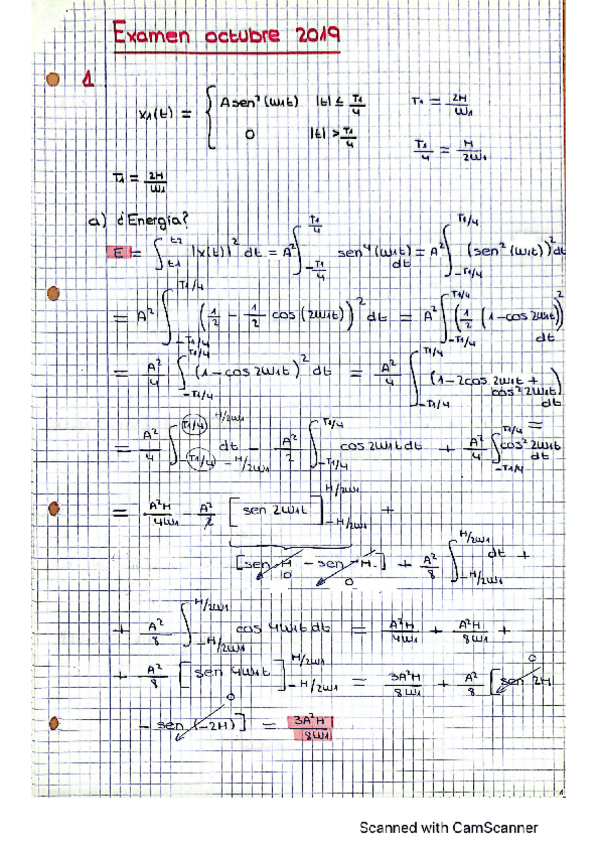 Examen octubre 2019
1
x1(t) = { A sen²(ω1t) |t| ≤ T1/4 T1 = 2π/ω1
0 |t| > T1/4 T1/4 = π/2ω1
T1 = 2π/ω1
a) ¿Energía?
E = ∫_{t1}^{t2} |x(t)|² dt = A² ∫_{-T1/4}^{T1/4} sen⁴(ω1t) dt = A² ∫_{-T1/4}^{T1/4} (sen²(ω1t))² dt
= A² ∫_{-T1/4}^{T1/4} (1/2 - 1/2 cos(2ω1t))² dt = A² ∫_{-T1/4}^{T1/4} (1/2 (1-cos 2ω1t))² dt
= A²/4 ∫_{-T1/4}^{T1/4} (1-cos 2ω1t)² dt = A²/4 ∫_{-T1/4}^{T1/4} (1-2cos 2ω1t + cos² 2ω1t) dt
= A²/4 ∫_{-T1/4 -π/2ω1}^{T1/4 π/2ω1} dt - A²/2 ∫_{-T1/4}^{T1/4} cos 2ω1t dt + A²/4 ∫_{-T1/4}^{T1/4} cos² 2ω1t dt =
= A²π/4ω1 - A²/2 [sen 2ω1t]_{-π/2ω1}^{π/2ω1} +
[sen π - sen -π] + A²/8 ∫_{-π/2ω1}^{π/2ω1} dt +
0 0
+ A²/8 ∫_{-π/2ω1}^{π/2ω1} cos 4ω1t dt = A²π/4ω1 + A²π/8ω1 +
+ A²/8 [sen 4ω1t]_{-π/2ω1}^{π/2ω1} = 3A²π/8ω1 + A²/8 [sen 2π 0
- sen (-2π) 0] = 3A²π/8ω1
1
Scanned with CamScanner